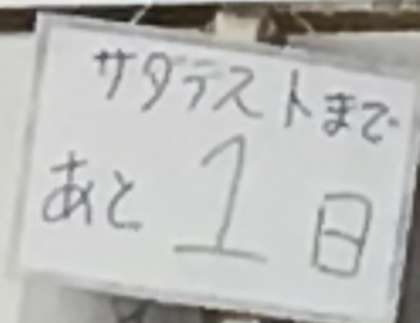 サダテストまで
あと1日